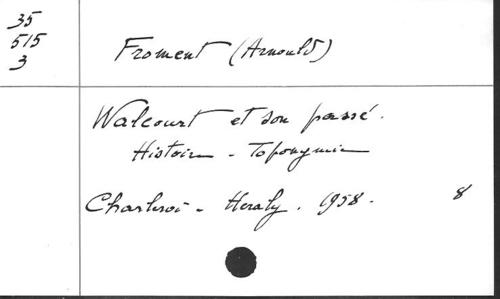 35
515
3
Froment (Arnould)
Walcourt et son passé.
Histoire - Toponymie
Charleroi - Heraly. 1958. 8